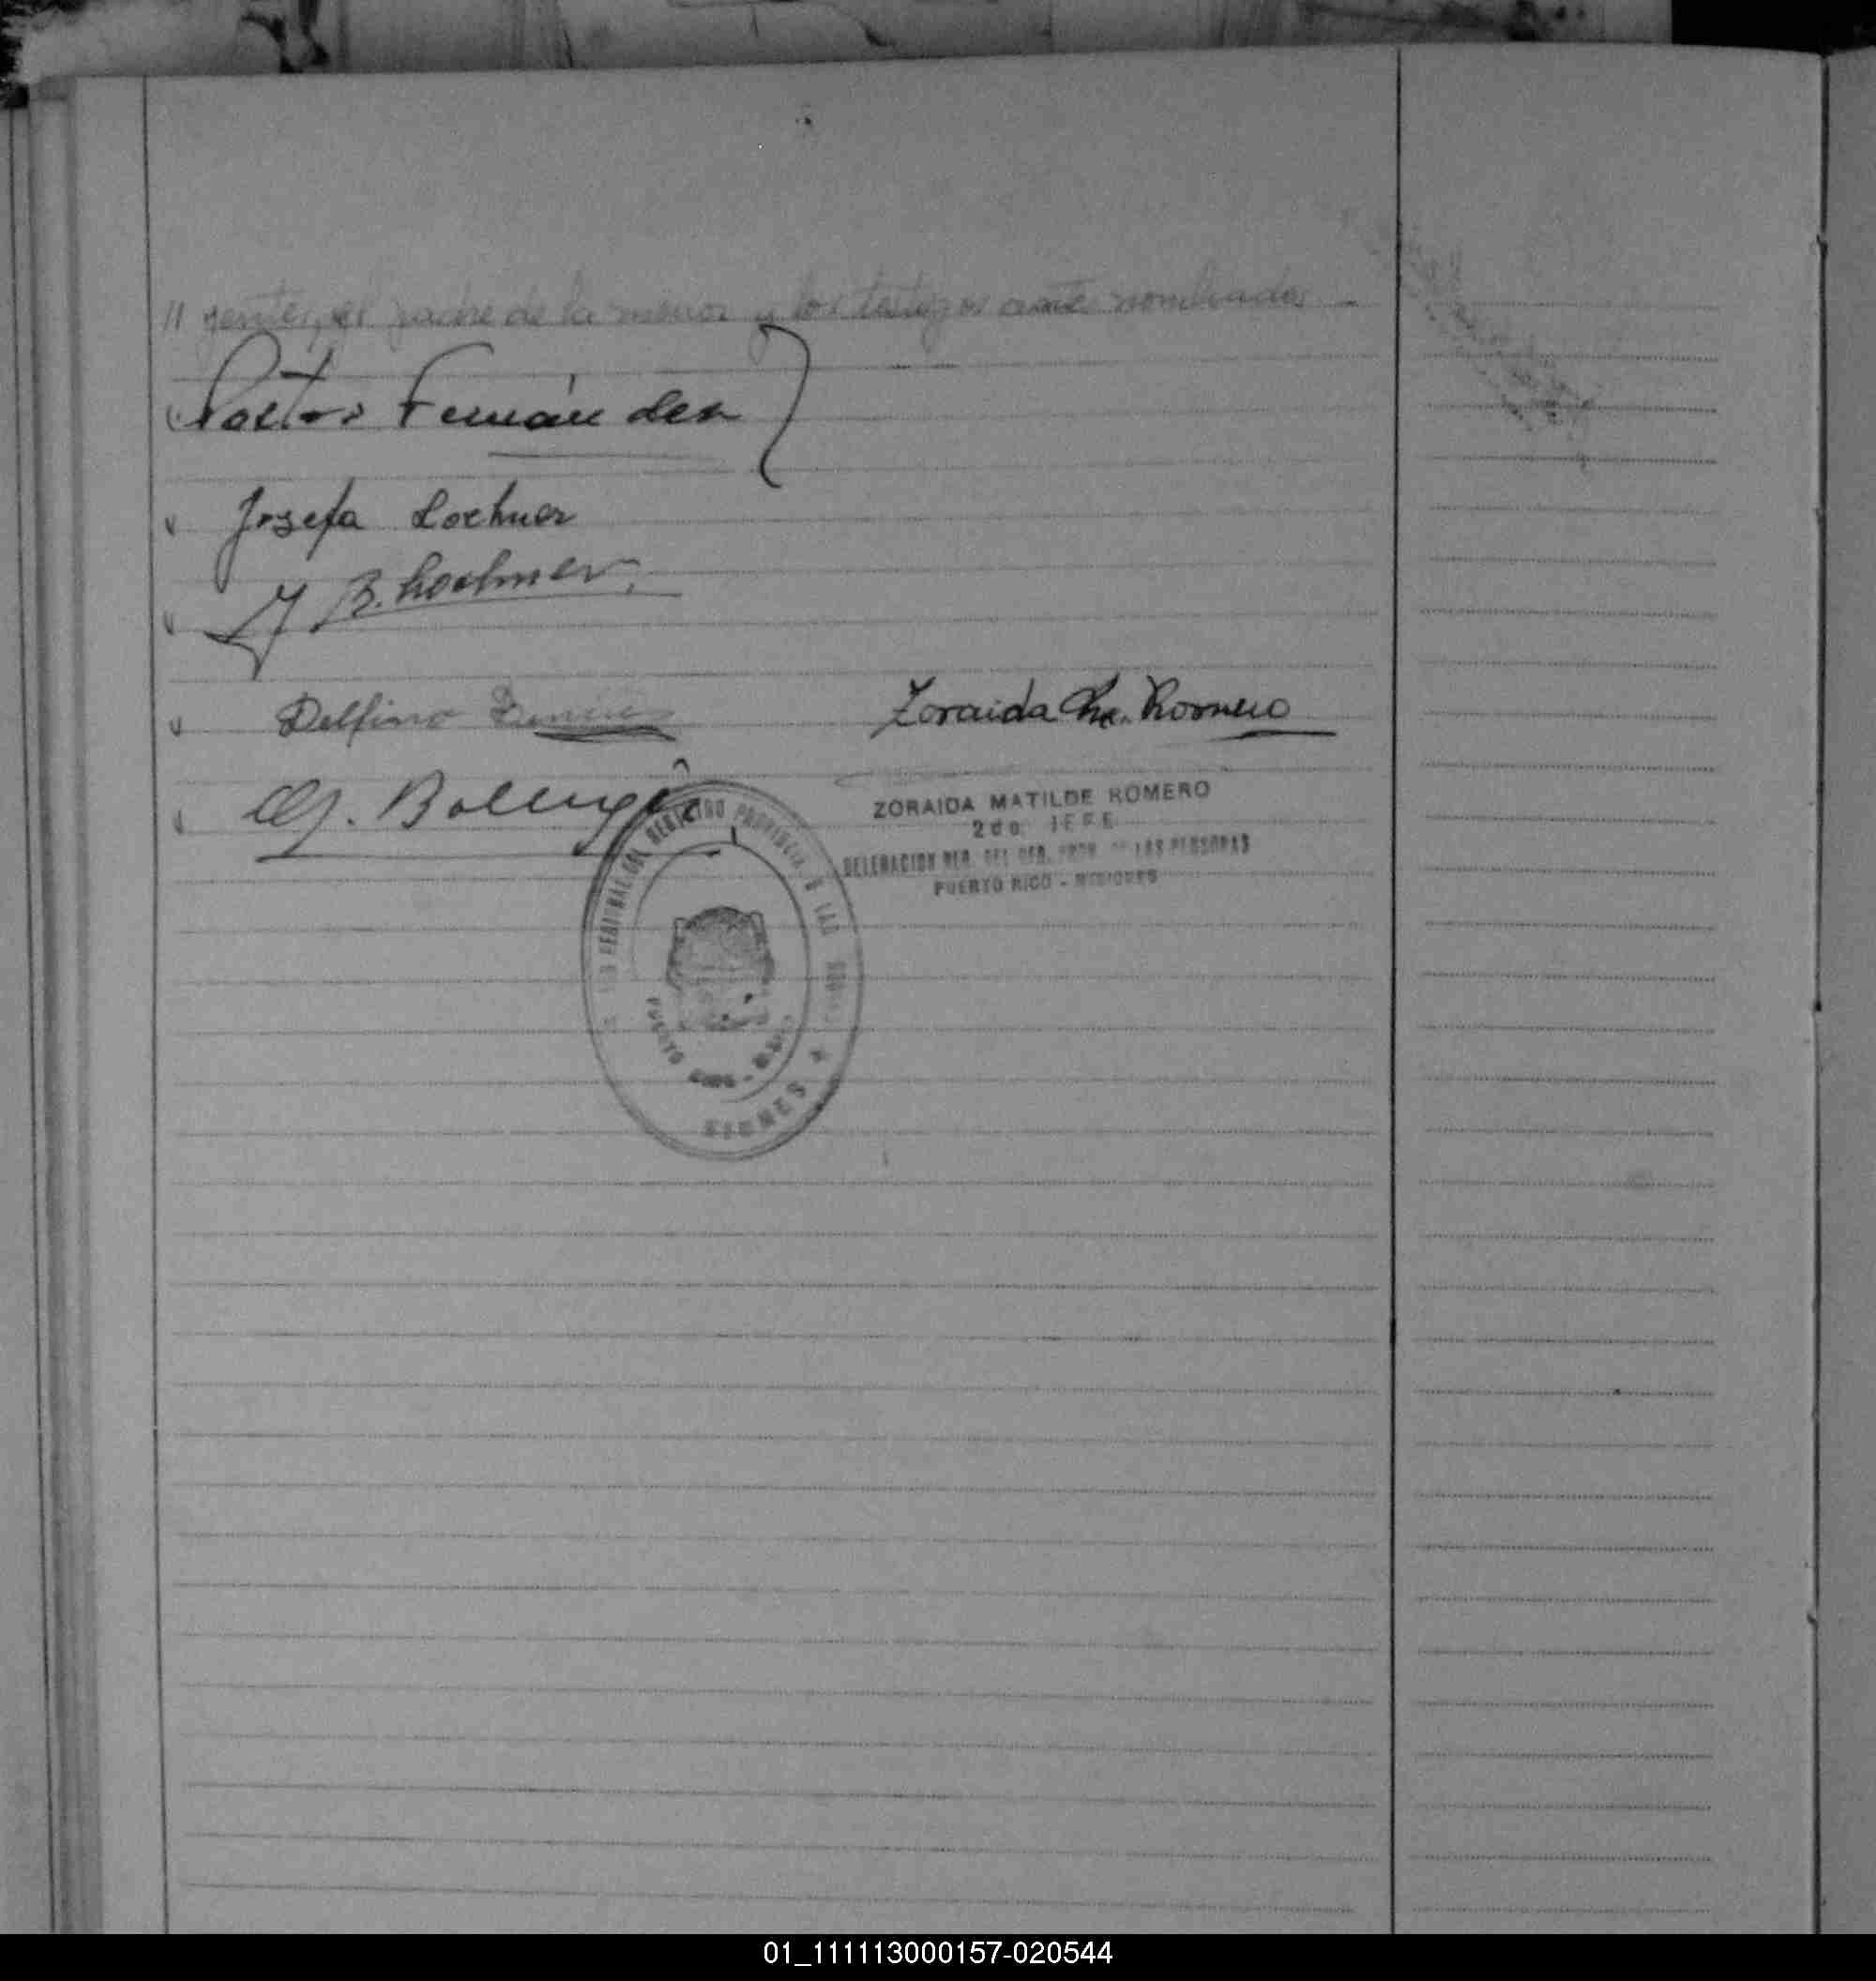 // yentes, el padre de la menor y los testigos ante nombrados –
Pastor Fernández
Josefa Lochner
J B. Lochner
Delfino
Zoraida M. Romero
ZORAIDA MATILDE ROMERO
2do JEFE
DELEGACION DE LAS PERSONAS
PUERTO RICO - MISIONES
DEL REGISTRO PROVINCIAL LAS
PUERTO RICO
MISIONES
01_111113000157-020544